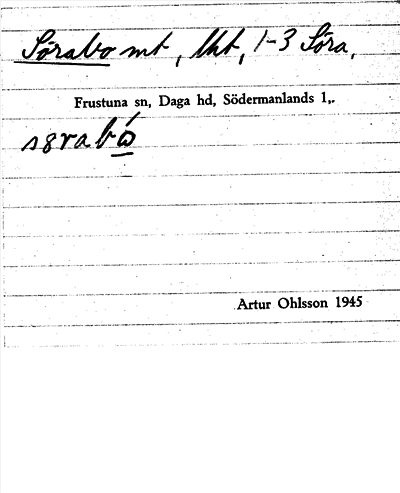 Sörabo mt, lht, 1-3 Söra.
Frustuna sn, Daga hd, Södermanlands l,.
Artur Ohlsson 1945